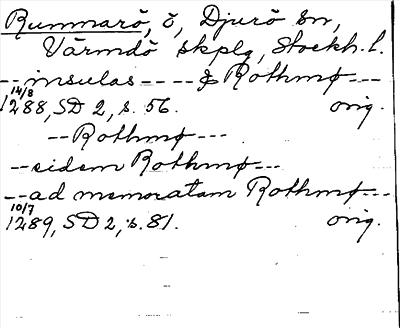 Runmarö, ö, Djurö sn,
Värmdö skplg, Stockh. l.
-- insulas ---- & Rothmø ---
14/8 1288, SD 2, s. 56. orig.
-- Rothmø ---
-- eidem Rothmø ---
-- ad memoratam Rothmø ---
10/7 1289, SD 2, s. 81. orig.